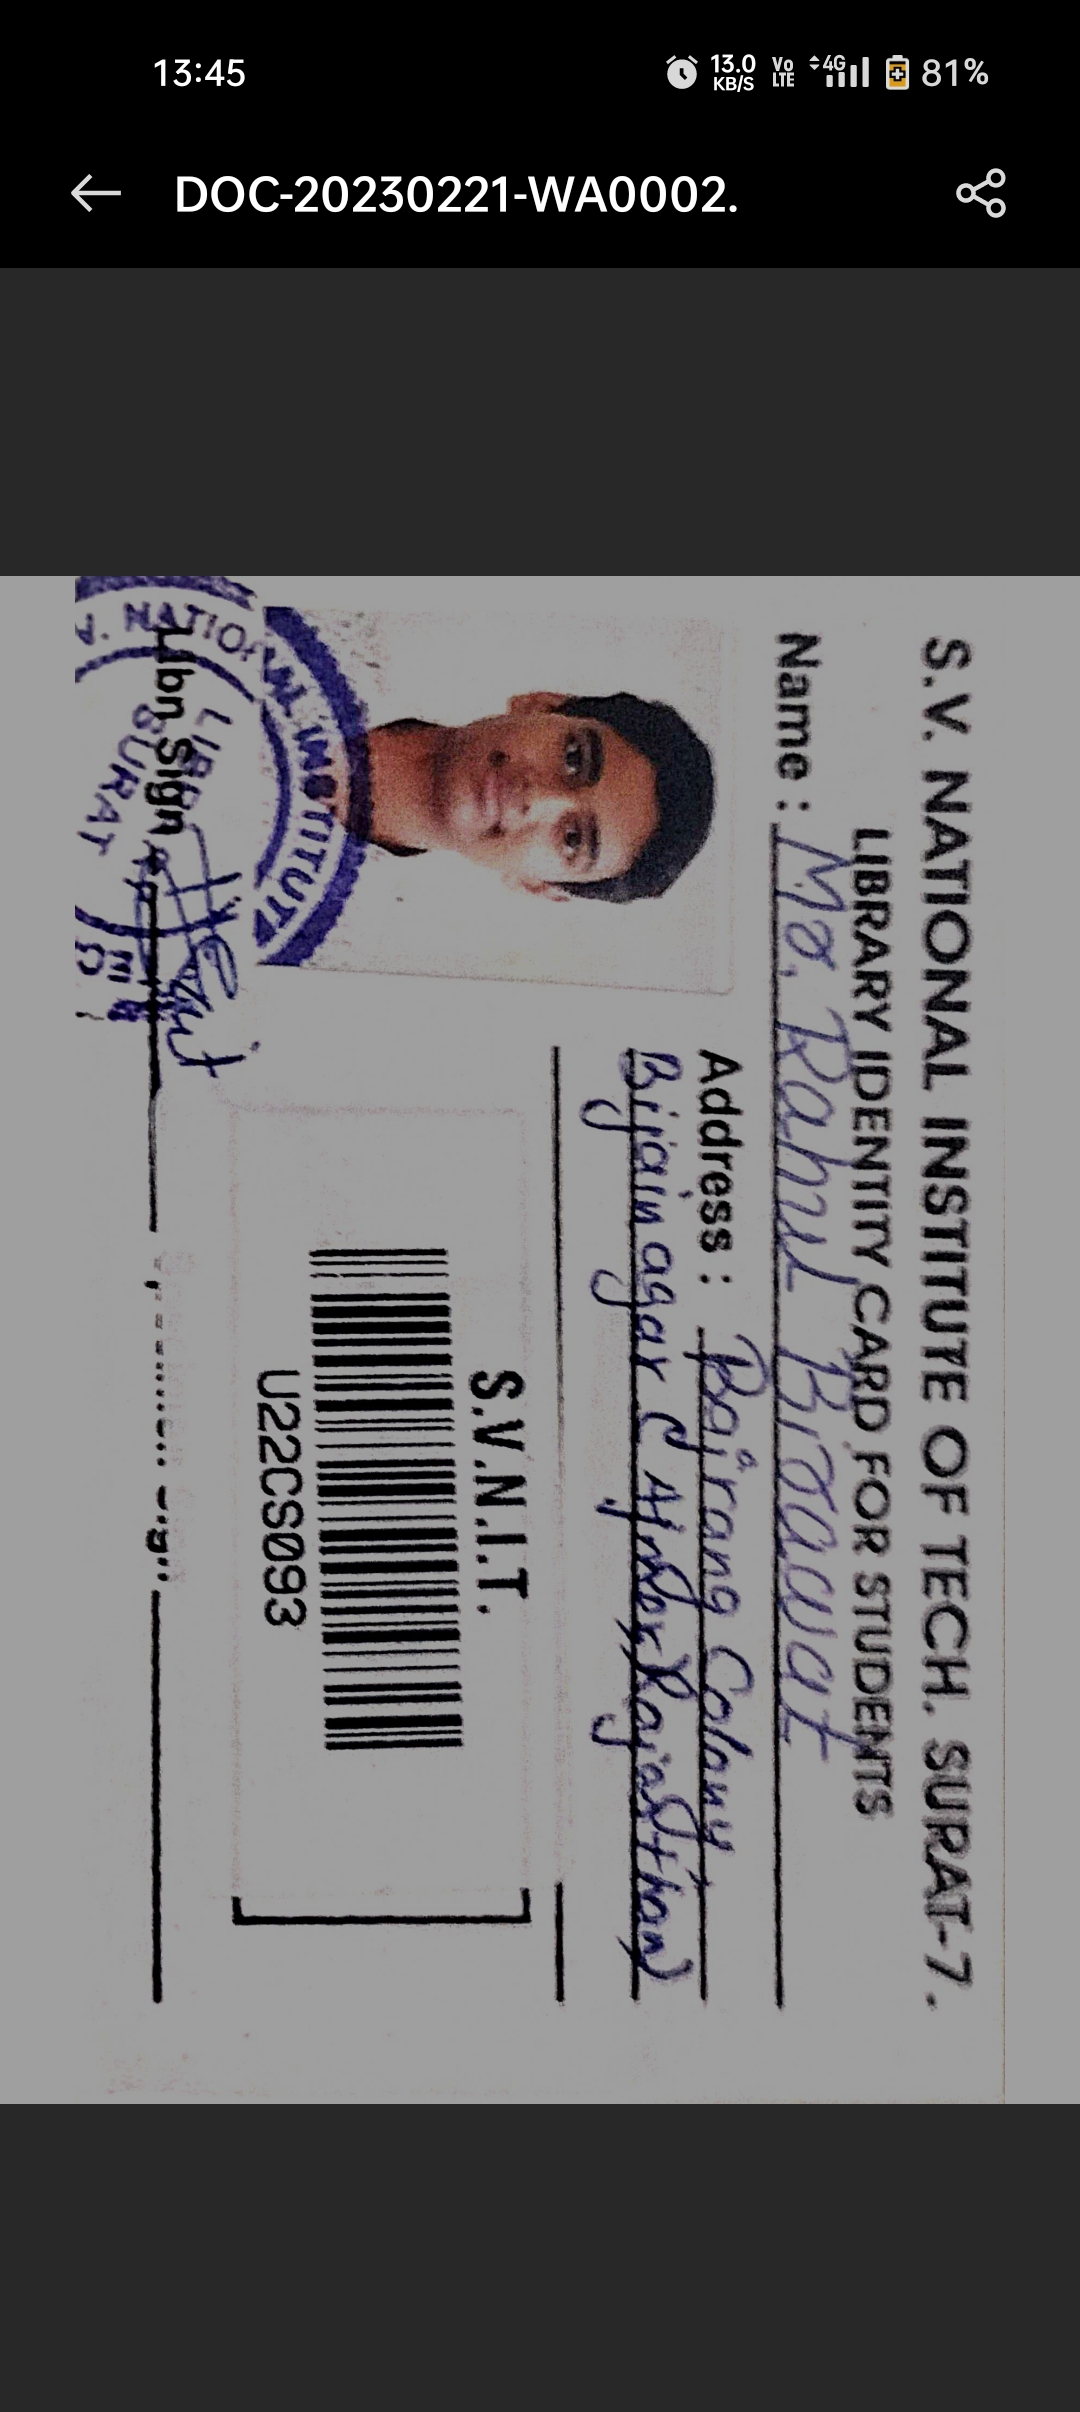 13:45
13.0 KB/S
Vo LTE
4G
81%
DOC-20230221-WA0002.
S.V. NATIONAL INSTITUTE OF TECH. SURAT-7.
LIBRARY IDENTITY CARD FOR STUDENTS
Name : Mo. Rahul Birawat
Address : Bajrang Colony
Bijainagar (Ajmer, Rajasthan)
S.V.N.I.T.
U22CS093
NATIONAL INSTITUTE
SURAT
Lbn Sign